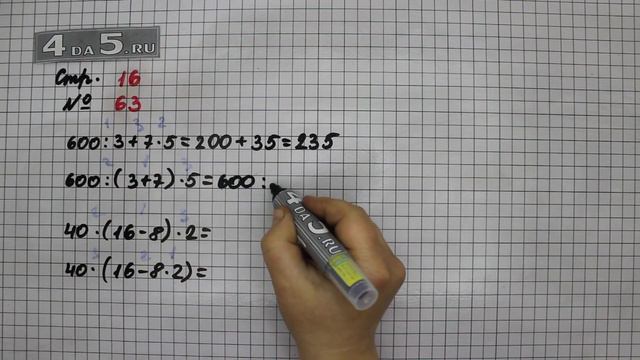 4 DA 5.RU
Стр. 16
№ 63
1 3 2
600:3+7·5=200+35=235
2 1 3
600:(3+7)·5=600:
2 1 3
40·(16-8)·2=
3 2 1
40·(16-8·2)=
4 DA 5.RU